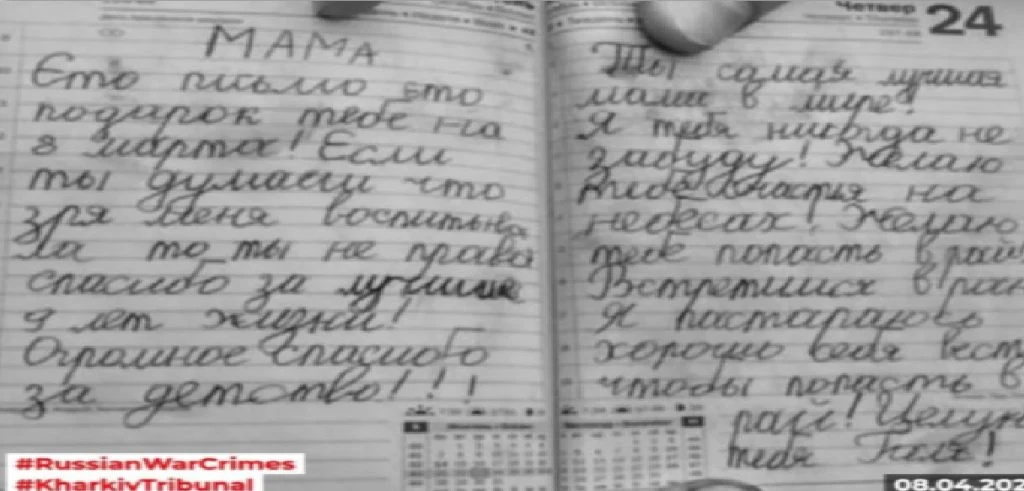 МАМА
Єто письмо єто
подарок тебе на
8 марта! Если
ты думаеш что
зря меня воспитыва
ла то ты не права
спасибо за лучшие
9 лет жизни!
Огромное спасибо
за детство!!!
Четвер
24
Ты самая лучшая
мама в мире!
Я тебя никогда не
забуду! Желаю
тебе счастья на
небесах! Желаю
тебе попасть в рай!
Встретимся в раю
Я пастараюсь
хорошо себя вест
чтобы попасть в
рай! Целую
тебя Галя!
#RussianWarCrimes
#KharkivTribunal
08.04.202